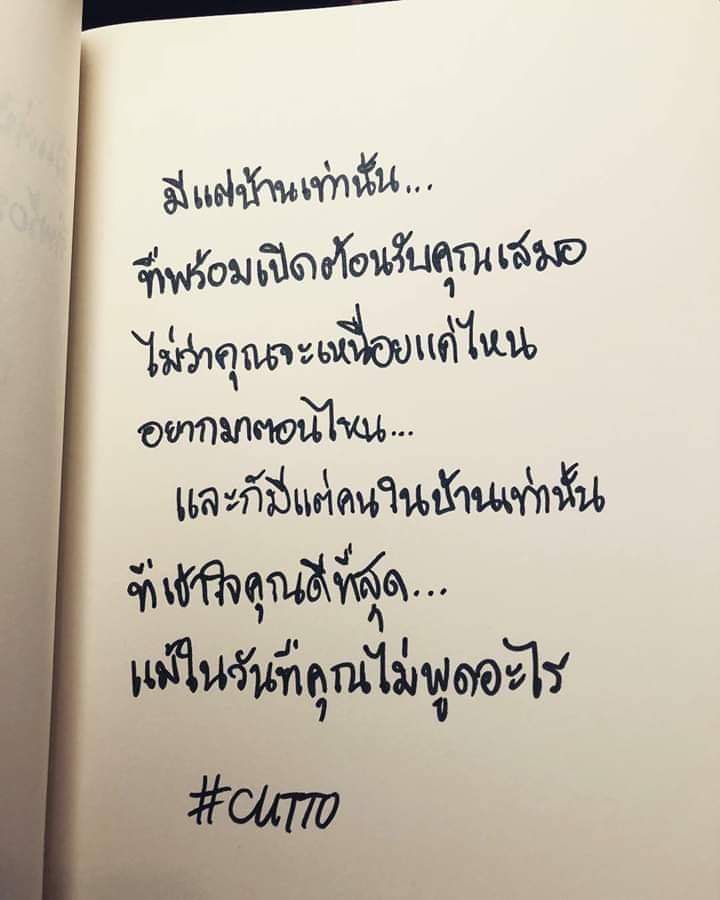 มีแต่บ้านเท่านั้น...
ที่พร้อมเปิดต้อนรับคุณเสมอ
ไม่ว่าคุณจะเหนื่อยแค่ไหน
อยากมาตอนไหน...
และก็มีแต่คนในบ้านเท่านั้น
ที่เข้าใจคุณดีที่สุด...
แม้ในวันที่คุณไม่พูดอะไร
#CUTTO